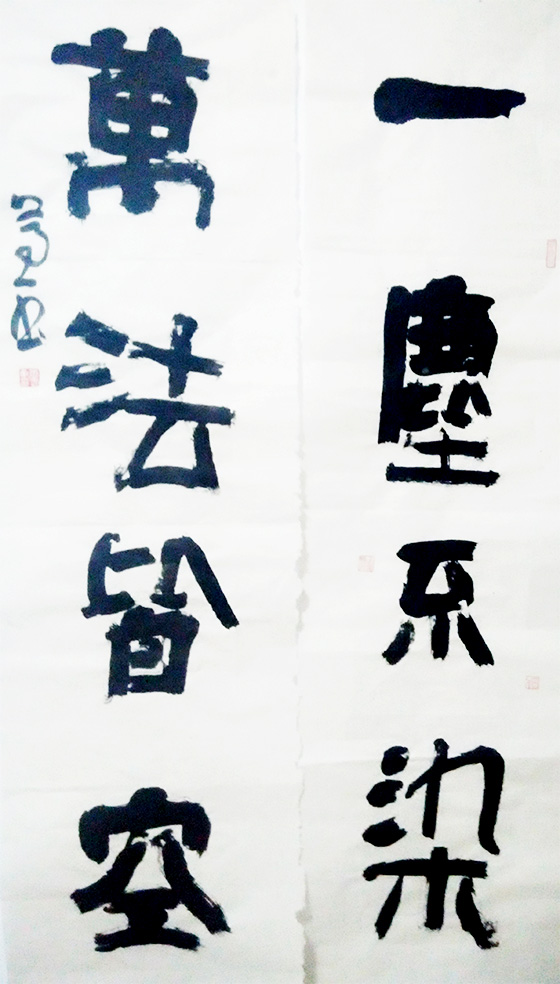 一塵不染
萬法皆空